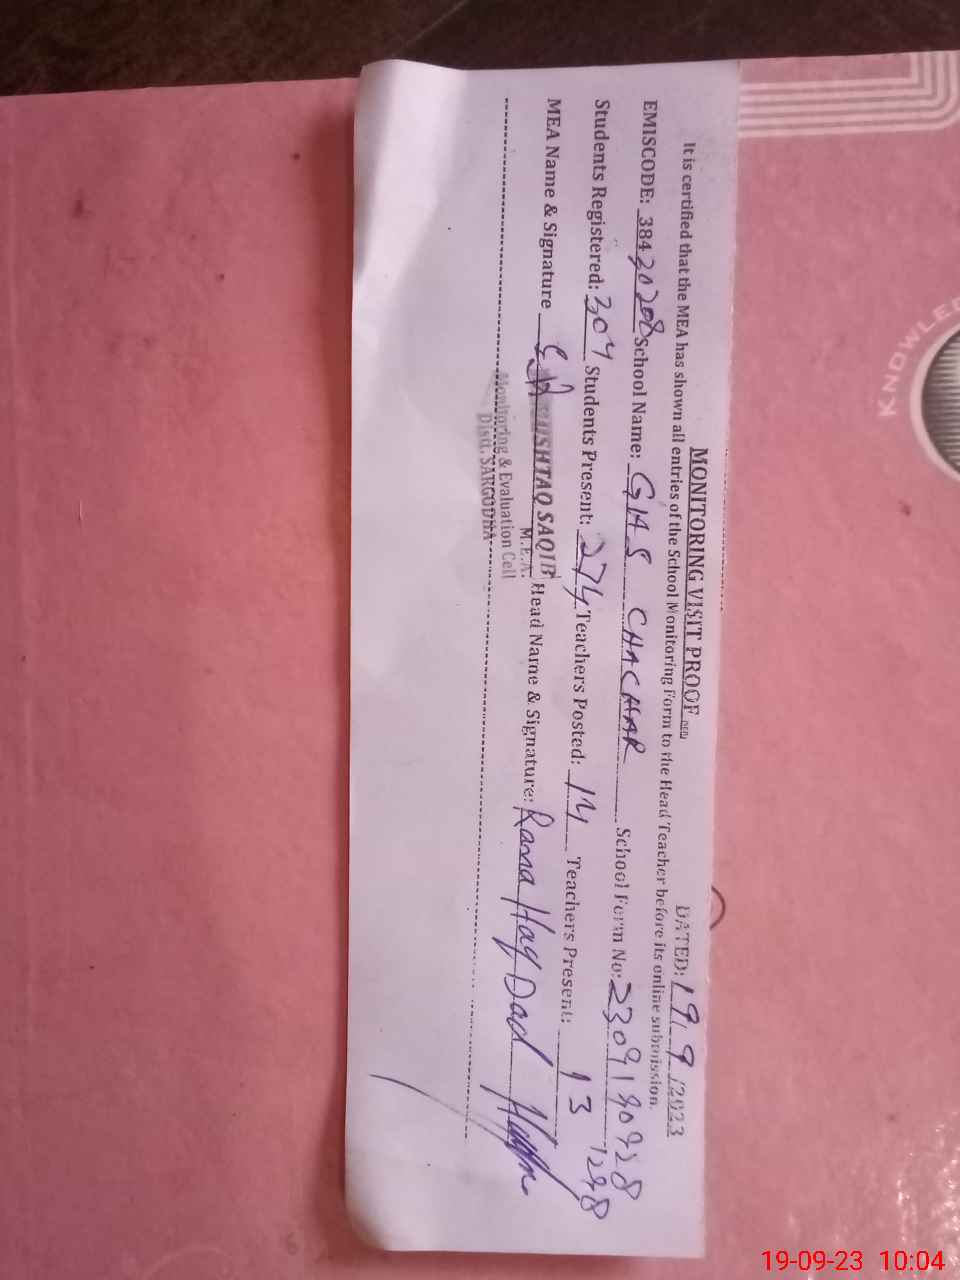 MONITORING VISIT PROOF
DATED: 19/9/2023
It is certified that the MEA has shown all entries of the School Monitoring Form to the Head Teacher before its online submission.
EMISCODE: 38420208 School Name: GHS CHACHAR School Form No:
Students Registered: 304 Students Present: 274 Teachers Posted: 14 Teachers Present: 13
MEA Name & Signature MUSHTAQ SAQIB Head Name & Signature: Rana Haq Dad
M.E.A.
Monitoring & Evaluation Cell
Distt. SARGODHA
KNOWLE
19-09-23 10:04